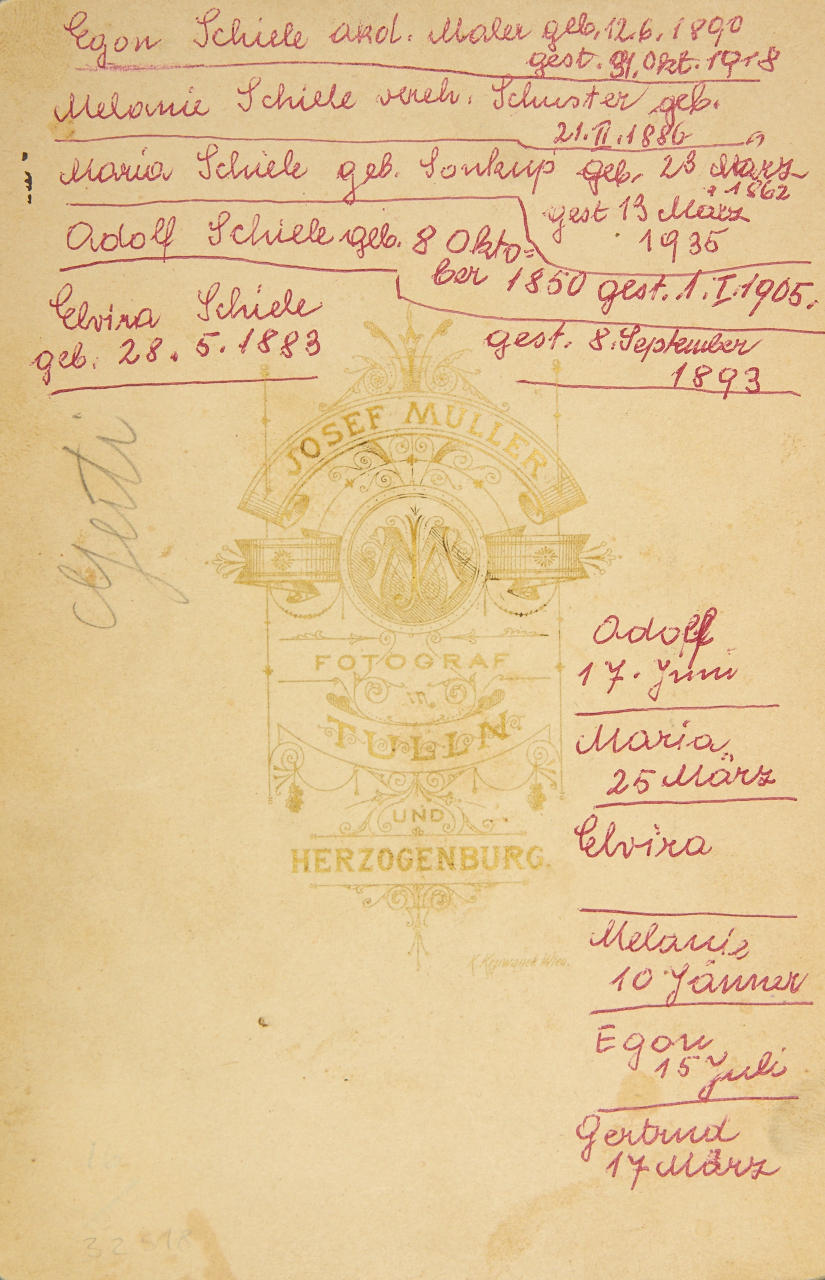 Egon Schiele akd. Maler geb. 12.6.1890
gest. 31. Okt. 1918
Melanie Schiele vereh. Schuster geb.
21. II. 1886
Maria Schiele geb. Soukup geb. 23 März
1862
gest 13 März
1935
Adolf Schiele geb. 8 Okto=
ber 1850 gest. 1. I. 1905.
Elvira Schiele
geb. 28. 5. 1883
gest. 8. September
1893
Gerti
JOSEF MULLER
JM
FOTOGRAF
in
TULLN
UND
HERZOGENBURG.
Wien.
Adolf
17. Juni
Maria
25 März
Elvira
Melanie
10 Jänner
Egon
15 Juli
Gertrud
17 März
32 18